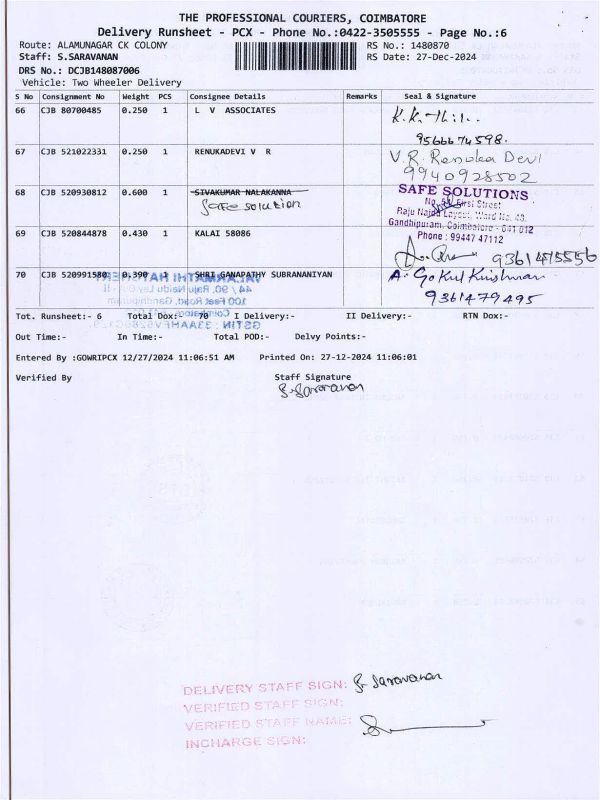 THE PROFESSIONAL COURIERS, COIMBATORE
Delivery Runsheet - PCX - Phone No.:0422-3505555 - Page No.:6
Route: ALAMUNAGAR CK COLONY RS No.: 1480870
Staff: S.SARAVANAN RS Date: 27-Dec-2024
DRS No.: DCJB148087006
Vehicle: Two Wheeler Delivery
S No Consignment No Weight PCS Consignee Details Remarks Seal & Signature
66 CJB 80700485 0.250 1 L V ASSOCIATES
9566674598.
67 CJB 521022331 0.250 1 RENUKADEVI V R V.R. Renuka Devi
9940928502
68 CJB 520930812 0.600 1 SIVAKUMAR NALAKANNA SAFE SOLUTIONS
Safe solution No. First Street
Raju Naidu Layout, Ward No. 48,
Gandhipuram, Coimbatore - 641 012
Phone : 99447 47112
69 CJB 520844878 0.430 1 KALAI 58086
9361455556
70 CJB 520991580 0.390 1 SHRI GANAPATHY SUBRANANIYAN A. Gokul Krishnan
9361479495
Tot. Runsheet:- 6 Total Dox:- 70 I Delivery:- II Delivery:- RTN Dox:-
Out Time:- In Time:- Total POD:- Delvy Points:-
Entered By :GOWRIPCX 12/27/2024 11:06:51 AM Printed On: 27-12-2024 11:06:01
Verified By Staff Signature
S. Saravanan
DELIVERY STAFF SIGN: S. Saravanan
VERIFIED STAFF SIGN:
VERIFIED STAFF NAME:
INCHARGE SIGN: